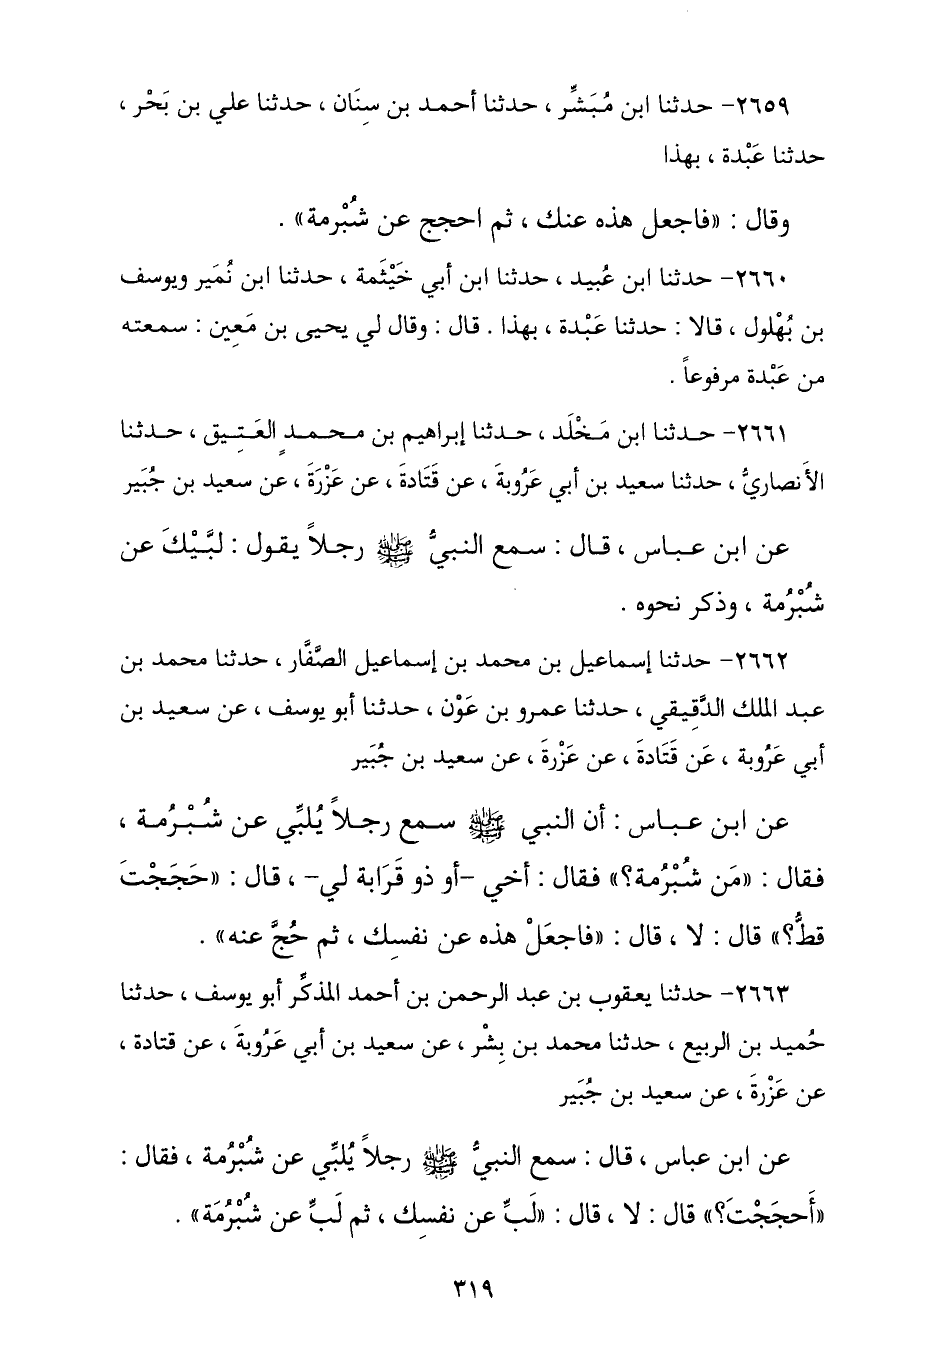 ٢٦٥٩- حدثنا ابن مُبَشِّر ، حدثنا أحمد بن سِنَان ، حدثنا علي بن بَحْر ،
حدثنا عَبْدة ، بهذا
وقال : «فاجعل هذه عنك ، ثم احجج عن شُبْرمة» .
٢٦٦٠- حدثنا ابن عُبيد ، حدثنا ابن أبي خَيْثَمة ، حدثنا ابن نُمَير ويوسف
بن بُهْلول ، قالا : حدثنا عَبْدة ، بهذا . قال : وقال لي يحيى بن مَعِين : سمعته
من عَبْدة مرفوعاً .
٢٦٦١- حدثنا ابن مَخْلَد ، حدثنا إبراهيم بن محمدٍ العَتِيق ، حدثنا
الأَنصاريُّ ، حدثنا سعيد بن أبي عَرُوبةَ ، عن قَتَادةَ ، عن عَزْرَةَ ، عن سعيد بن جُبَير
عن ابن عباس ، قال : سمع النبيُّ ﷺ رجلاً يقول : لبَّيْكَ عن
شُبْرُمة ، وذكر نحوه .
٢٦٦٢- حدثنا إسماعيل بن محمد بن إسماعيل الصَّفَّار ، حدثنا محمد بن
عبد الملك الدَّقِيقي ، حدثنا عمرو بن عَوْن ، حدثنا أبو يوسف ، عن سعيد بن
أبي عَرُوبة ، عَن قَتَادةَ ، عن عَزْرةَ ، عن سعيد بن جُبَير
عن ابن عباس : أن النبي ﷺ سمع رجلاً يُلبِّي عن شُبْرُمة ،
فقال : «مَن شُبْرُمة؟» فقال : أخي -أو ذو قَرَابة لي- ، قال : «حَجَجْتَ
قطُّ؟» قال : لا ، قال : «فاجعَلْ هذه عن نفسِك ، ثم حُجَّ عنه» .
٢٦٦٣- حدثنا يعقوب بن عبد الرحمن بن أحمد المذكِّر أبو يوسف ، حدثنا
حُميد بن الربيع ، حدثنا محمد بن بِشْر ، عن سعيد بن أبي عَرُوبةَ ، عن قتادة ،
عن عَزْرةَ ، عن سعيد بن جُبَير
عن ابن عباس ، قال : سمع النبيُّ ﷺ رجلاً يُلبِّي عن شُبْرُمة ، فقال :
«أَحجَجْتَ؟» قال : لا ، قال : «لَبِّ عن نفسِك ، ثم لَبِّ عن شُبْرُمَة» .
٣١٩